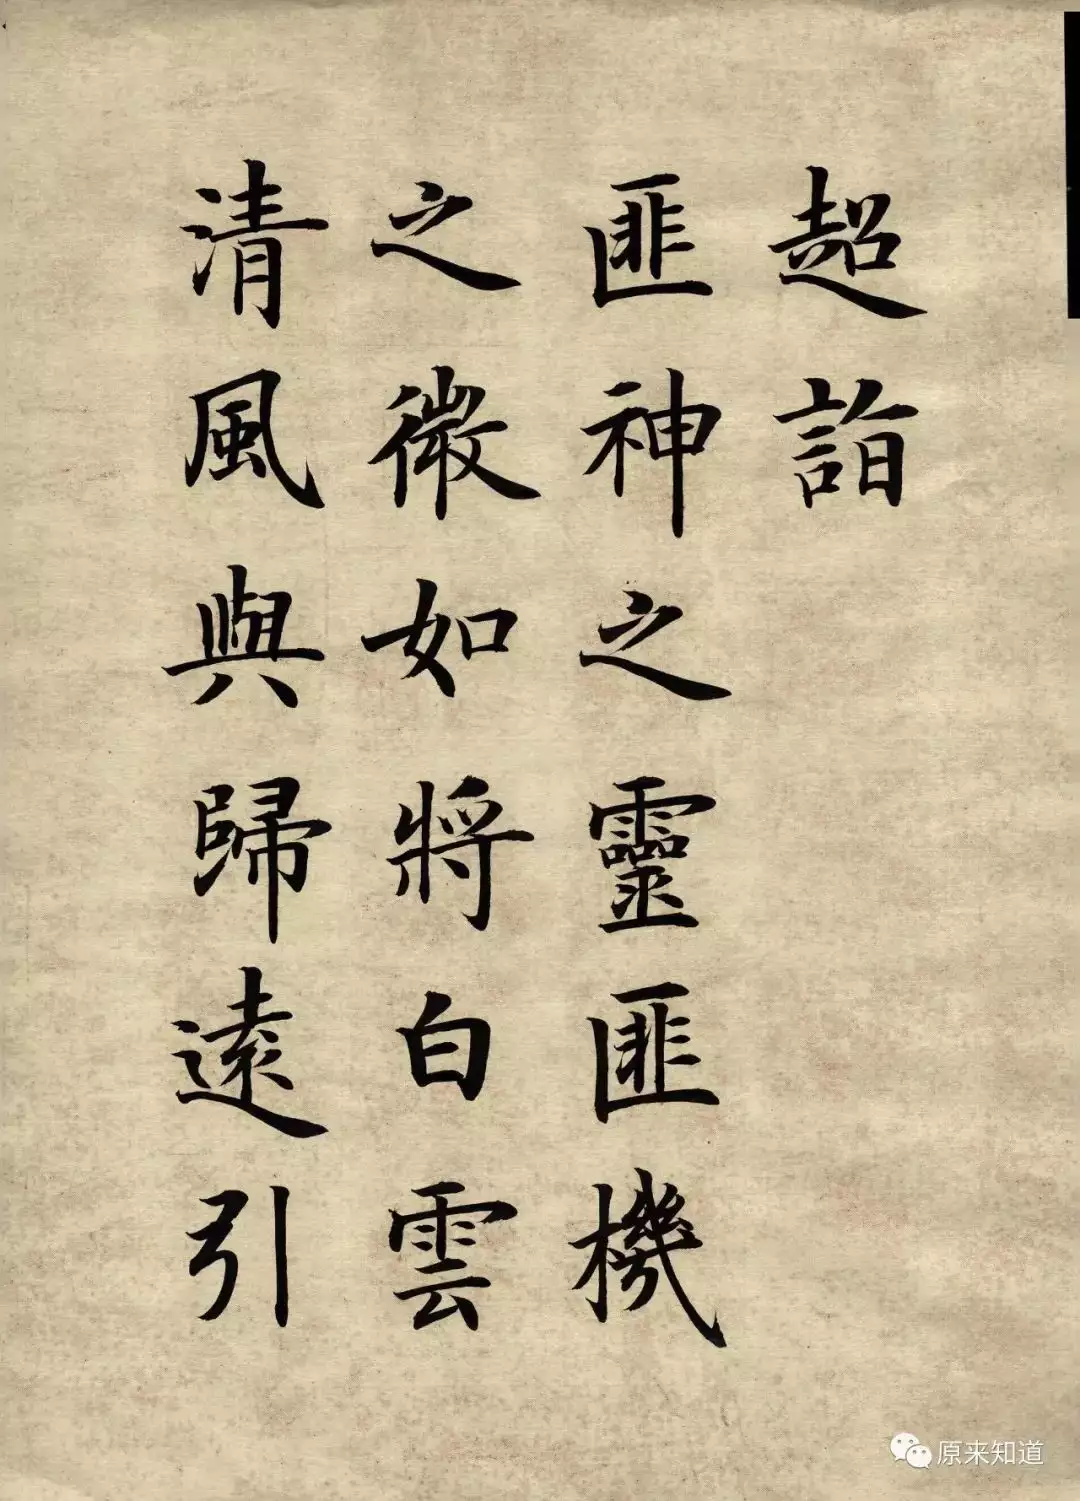 超詣
匪神之靈匪機
之微如將白雲
清風與歸遠引
原来知道